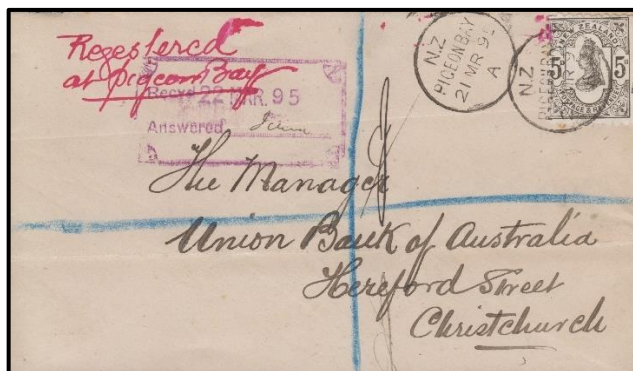 Regestered
at pigeon Bay
Recvd 22 MAR. 95
Answered
N.Z
PIGEON BAY
21 MR 9
A
N.Z
PIGEON BAY
NEW ZEALAND
5 5
POSTAGE & REVENUE
The Manager
Union Bank of Australia
Hereford Street
Christchurch